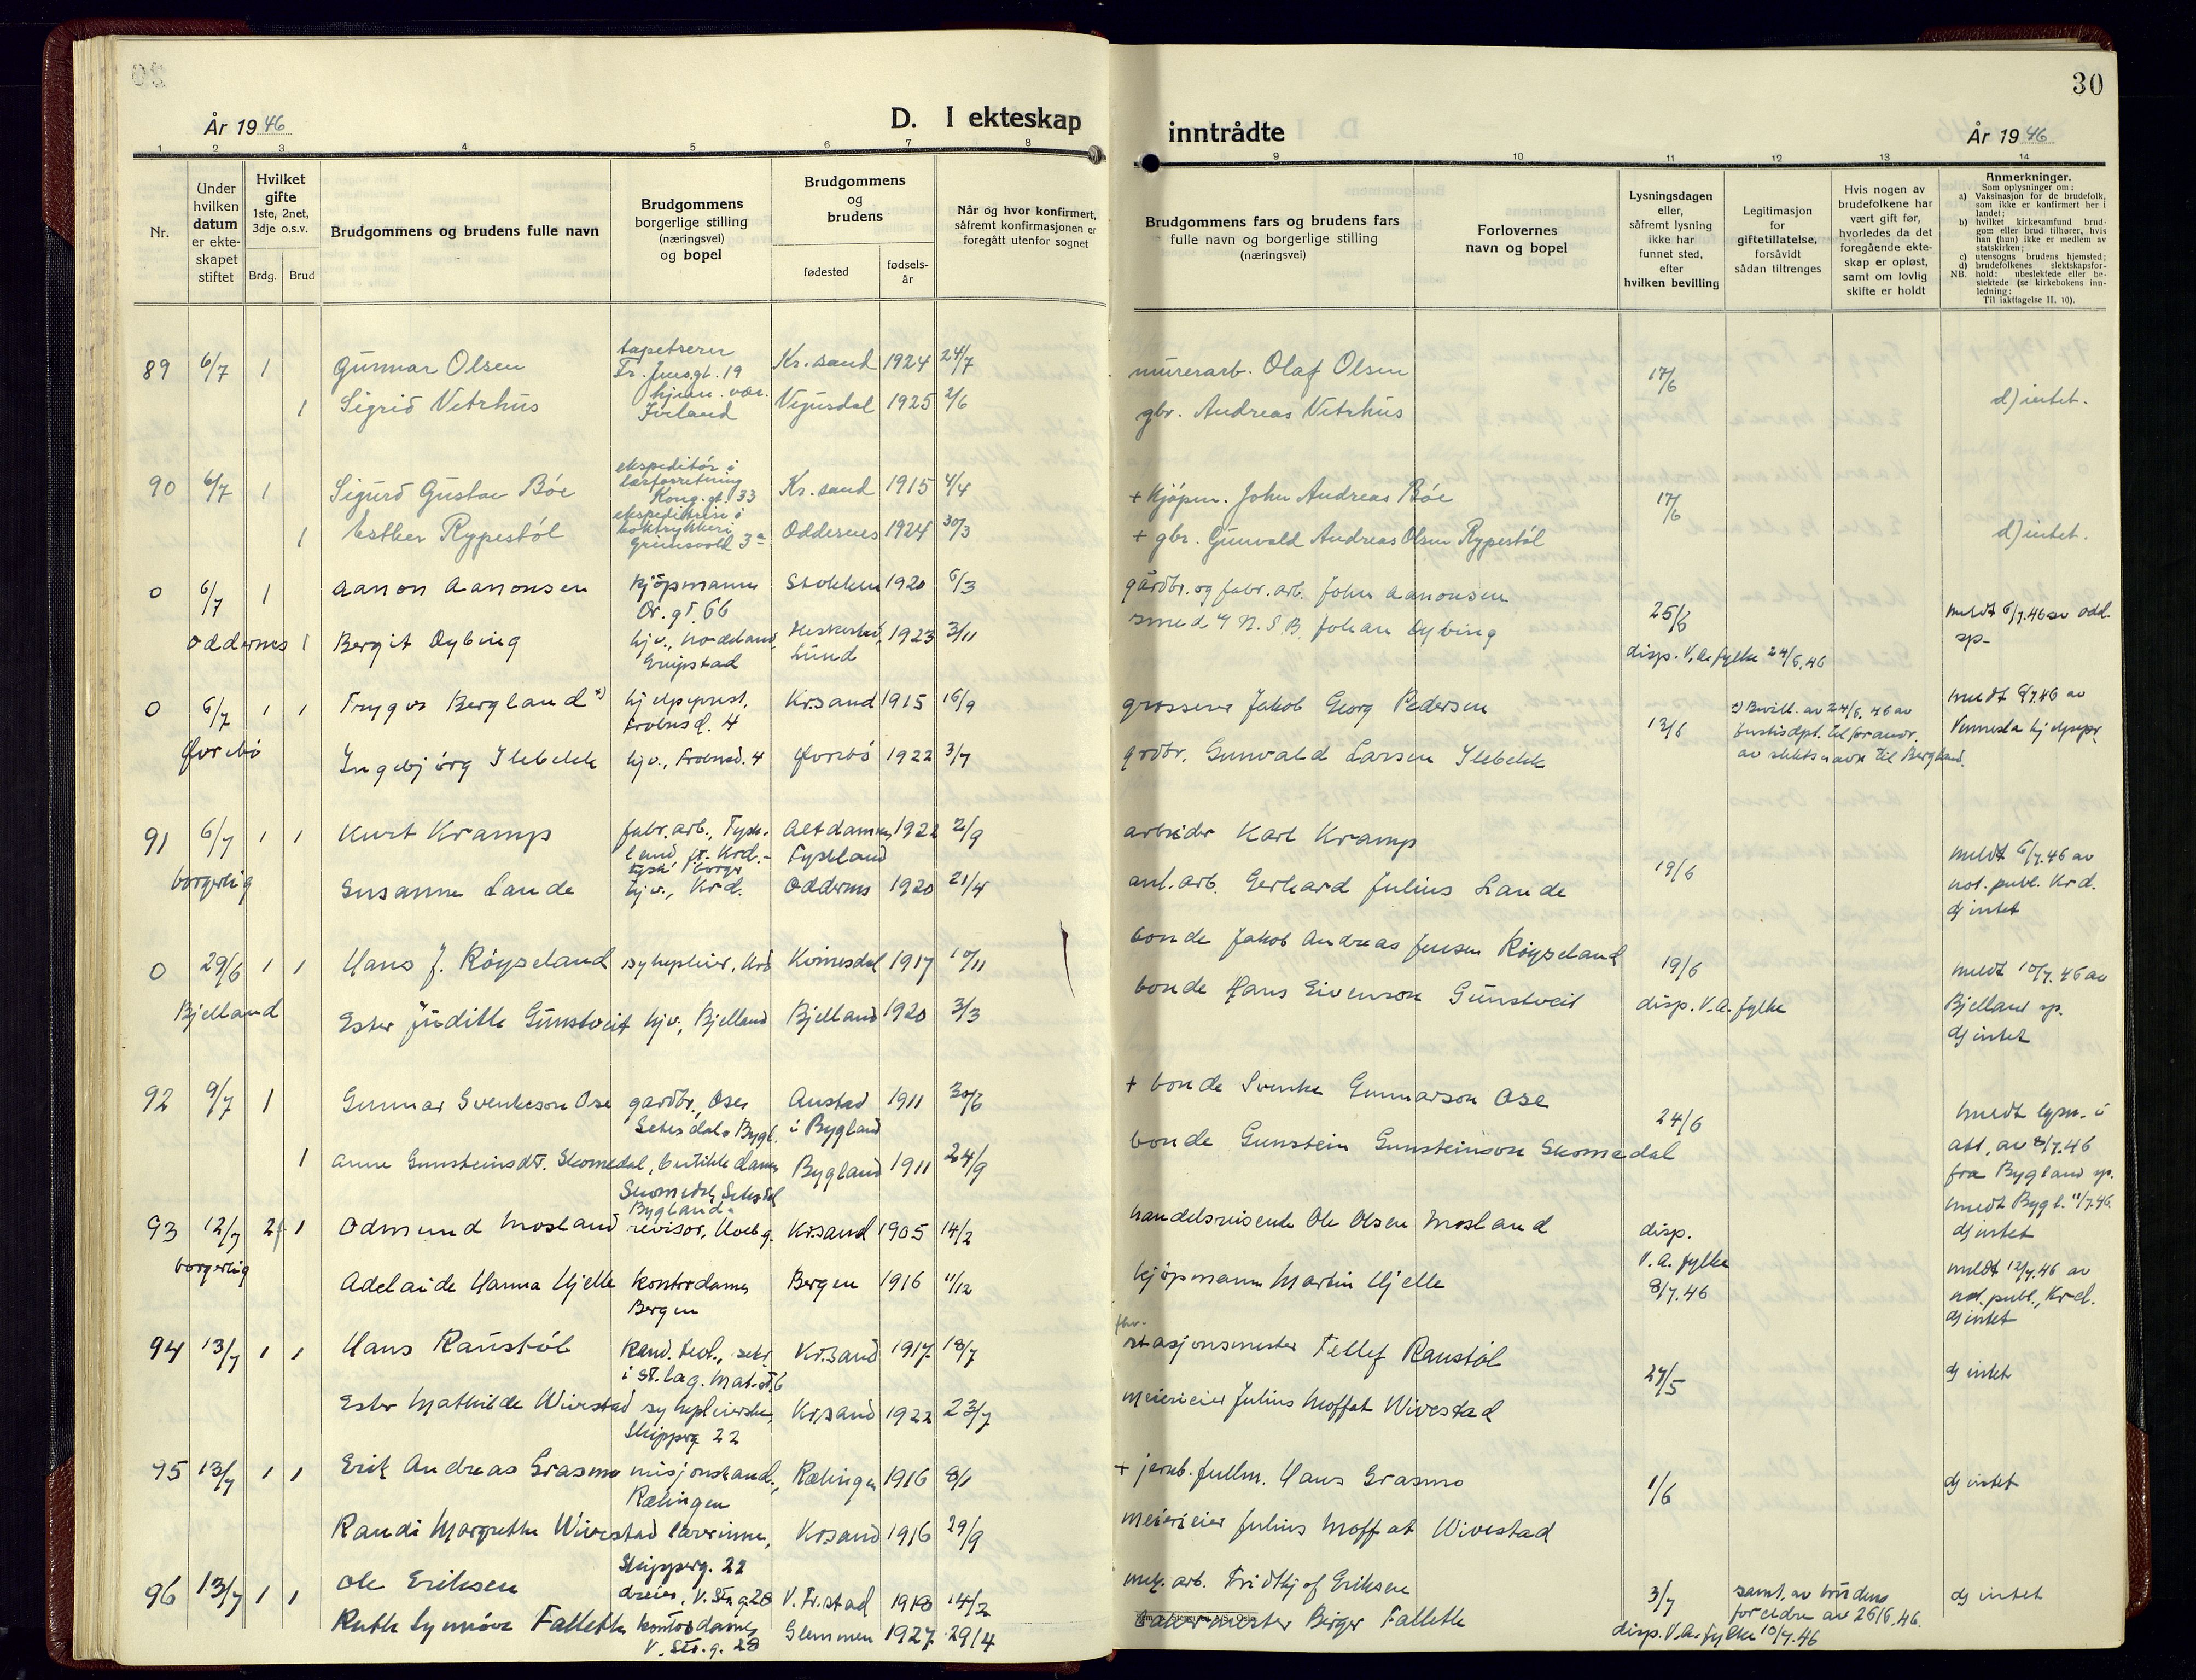 30
År 1946
D. I ekteskap
inntrådte
År 1946
1 2 3 4 5 6 7 8 9 10 11 12 13 14
Nr.
Under
hvilken
datum
er ekte-
skapet
stiftet
Hvilket
gifte
1ste, 2net,
3dje o.s.v.
Brdg. Brud
Brudgommens og brudens fulle navn
Brudgommens
borgerlige stilling
(næringsvei)
og bopel
Brudgommens
og
brudens
fødested
fødsels-
år
Når og hvor konfirmert,
såfremt konfirmasjonen er
foregått utenfor sognet
Brudgommens fars og brudens fars
fulle navn og borgerlige stilling
(næringsvei)
Forlovernes
navn og bopel
Lysningsdagen
eller,
såfremt lysning
ikke har
funnet sted,
efter
hvilken bevilling
Legitimasjon
for
giftetillatelse,
forsåvidt
sådan tiltrenges
Hvis nogen av
brudefolkene har
vært gift før,
hvorledes da det
foregående ekte-
skap er opløst,
samt om lovlig
skifte er holdt
Anmerkninger.
Som oplysninger om:
a) Vaksinasjon for de brudefolk,
som ikke er konfirmert her i
landet;
b) hvilket kirkesamfund brud-
gom eller brud tilhører, hvis
han (hun) ikke er medlem av
statskirken;
c) utensogns brudens hjemsted;
d) brudefolkenes slektskapsfor-
hold: ubeslektede eller be-
slektede (se kirkebokens inn-
ledning:
NB. Til iakttagelse II. 10).
89 6/7 1 Gunnar Olsen tapetserer Kr.sand 1924 24/7 murerarb. Olaf Olsen 17/6
1 Sigrid Vetrhus Iveland Vegusdal 1925 2/6 gbr. Andreas Vetrhus d) intet.
90 6/7 1 Sigurd Gustav Bóe ekspeditør i Kong.gt. 33 Kr.sand 1915 4/4 + Kjópm. John Andreas Bóe 17/6
1 Esther Rypestól Grimsvold 3a Oddernes 1924 30/3 + gbr. Gunvald Andreas Olsen Rypestól d) intet.
0 6/7 1 Aanon Aanonsen kjøpmann Stokken 1920 6/3 gårdbr. og fabr. arb. John Aanonsen 25/6
Oddernes 1 Bergit Dybing hjv. Lund 1923 3/11 smed v/ N.S.B. Johan Dybing disp. V.A. fylke 24/6.46 meldt 6/7.46 av Odd. sp.
0 6/7 1 1 Trygve Bergland x) hjelpeprest, Kr.sand 1915 16/9 grosserer Jakob Georg Pedersen 13/6 x) Bevill. av 24/6.46 av justisdpt. til forandr. av slektsnavn til Bergland. meldt 9/7.46 av Vennesla hjelpepr.
Øvrebø Ingebjørg Ilebekk hjv. Øvrebó 1922 3/7 grdbr. Gunvald Larsen Ilebekk
91 6/7 1 1 Kurt Kramp fabr. arb., Tysk- land Altdamm, Tyskland 1922 2/9 arbeider Karl Kramp 19/6 meldt 6/7.46 av
borgerlig Susanne Lande hjv., Krd. Oddernes 1920 21/4 anl. arb. Gerhard Julius Lande not. publ. Krd.
d) intet
0 29/6 1 1 Hans J. Róyseland sykepleier, Krd Kvinesdal 1917 10/11 bonde Jakob Andreas Jensen Róyseland 19/6 meldt 10/7.46 av
Bjelland Ester Judith Gunstveit hjv., Bjelland Bjelland 1920 3/3 bonde Hans Eivenson Gunstveit disp. V.A. fylke Bjelland sp.
d) intet
92 9/7 1 Gunnar Svenkeson Ose gardbr., Ose, Setesdal, Bygl. Austad i Bygland 1911 30/6 + bonde Svenke Gunnarson Ose 24/6 meldt lysn. i
1 Anne Gunsteinsdt. Skomedal, butikkdame, Skomedal, Setesdal Bygland 1911 24/9 bonde Gunstein Gunsteinson Skomedal att. av 8/7.46
fra Bygland sp.
meldt Bygl. 11/7.46.
d) intet
93 12/7 2 1 Odmund Mosland revisor, Kr.sand 1905 14/2 handelsreisende Ole Olsen Mosland disp. V.A. fylke 8/7.46
borgerlig Adelaide Hanna Hjelle kontordame, Bergen Bergen 1916 11/12 kjøpmann Martin Hjelle meldt 12/7.46 av
not. publ., Krd.
d) intet
94 13/7 1 1 Hans Raustól kand. teol., sekr. i st. lag. Kr.sand 1917 18/7 fhv. stasjonsmester Tellef Raustól 27/5 d) intet
Ester Mathilde Wivestad sykepleierske, Skipperg. 22 Kr.sand 1922 23/7 meierieier Julius Moffat Wivestad
95 13/7 1 1 Erik Andreas Grasmo misjonskand., Rælingen Rælingen 1916 8/1 + jernb. fullm. Hans Grasmo 1/6 d) intet
Randi Margrethe Wivestad lærerinne, Skipperg. 22 Kr.sand 1916 29/9 meierieier Julius Moffat Wivestad
96 13/7 1 1 Ole Eriksen dreier, V. Str.g. 28 V. Fr.stad 1918 14/2 mek. arb. Fridthjof Eriksen 3/7 samt. av brudens foreldre av 26/6.46. d) intet
Ruth Synnóve Falleth kontordame, V. Str.g. 28 Glemmen 1927 29/4 Birger Falleth disp. V.A. fylke 10/7.46